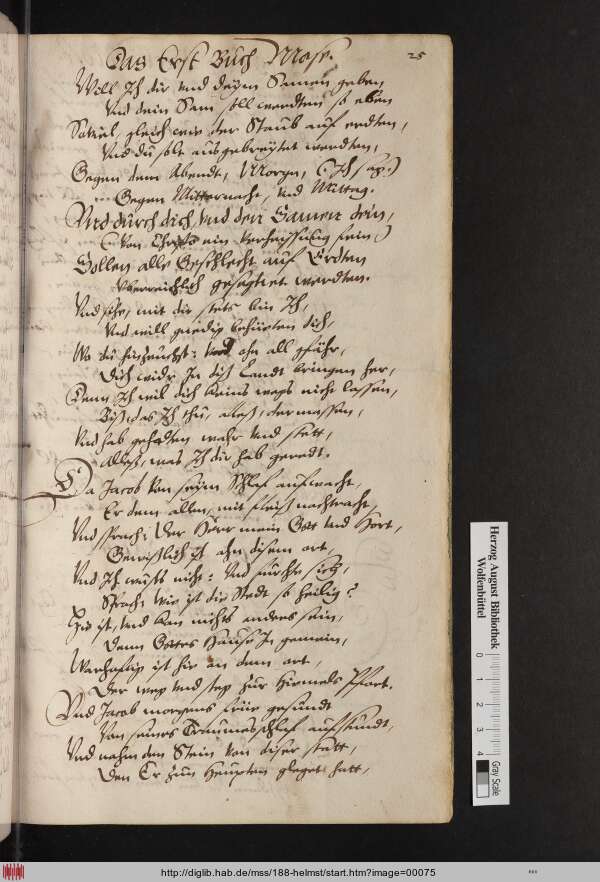 Das Erst Buch Mose.
25
Will Ich dir vnd deÿm Samen geben
Vnd dein Sam soll werdten so eben
Souiel, gleich wie der Staub auf erdten,
Vnd du solt ausgebreÿtet werdten,
Gegen dem Abendt, Morgn, (Ich sag)
Gegen Mitternacht, vnd Mittag.
Vnd durch dich, vnd den Samen dein,
(Von Christo ein verheissung fein)
Sollen alle Geschlecht auf Erdten
gesegnet werdten.
Vnd sihe, mit dir stets bin Ich,
Vnd will gnedig behüeten dich,
Wo du hinzeuchst: ohn all gfähr,
Dich widr In diß Landt bringen her,
Denn Ich wil dich keins wegs nicht lassen,
Biß das Ich thu, alles, dermassen,
Vnd hab gehalten wahr vnd stett,
Alles, was Ich dir hab geredt.
Da Jacob von seÿm Schlaf aufwacht,
Er dem allen, mit fleiß nachtracht,
Vnd sprach: Der Herr mein Gott vnd Hort,
Gewißlich ist ahn disem ort,
Vnd Ich wusts nicht: Vnd fürchte sich,
Sprach: Wie ist die Stedt so heilig?
Hie ist, vnd kan nichts anders sein,
Denn Gottes Hause In gemein,
Warhaftig ist hie an dem ort,
Der weg vnd steg zur Himmels Pfort.
Vnd Jacob morgens früe gesundt
Von seines Traumes schlaf aufstundt,
Vnd nahm den Stein von diser stätt,
Den Er zun Heupten gleget hatt,
Herzog August Bibliothek
Wolfenbüttel
0 1 2 3 4
Gray Scale
http://diglib.hab.de/mss/188-helmst/start.htm?image=00075